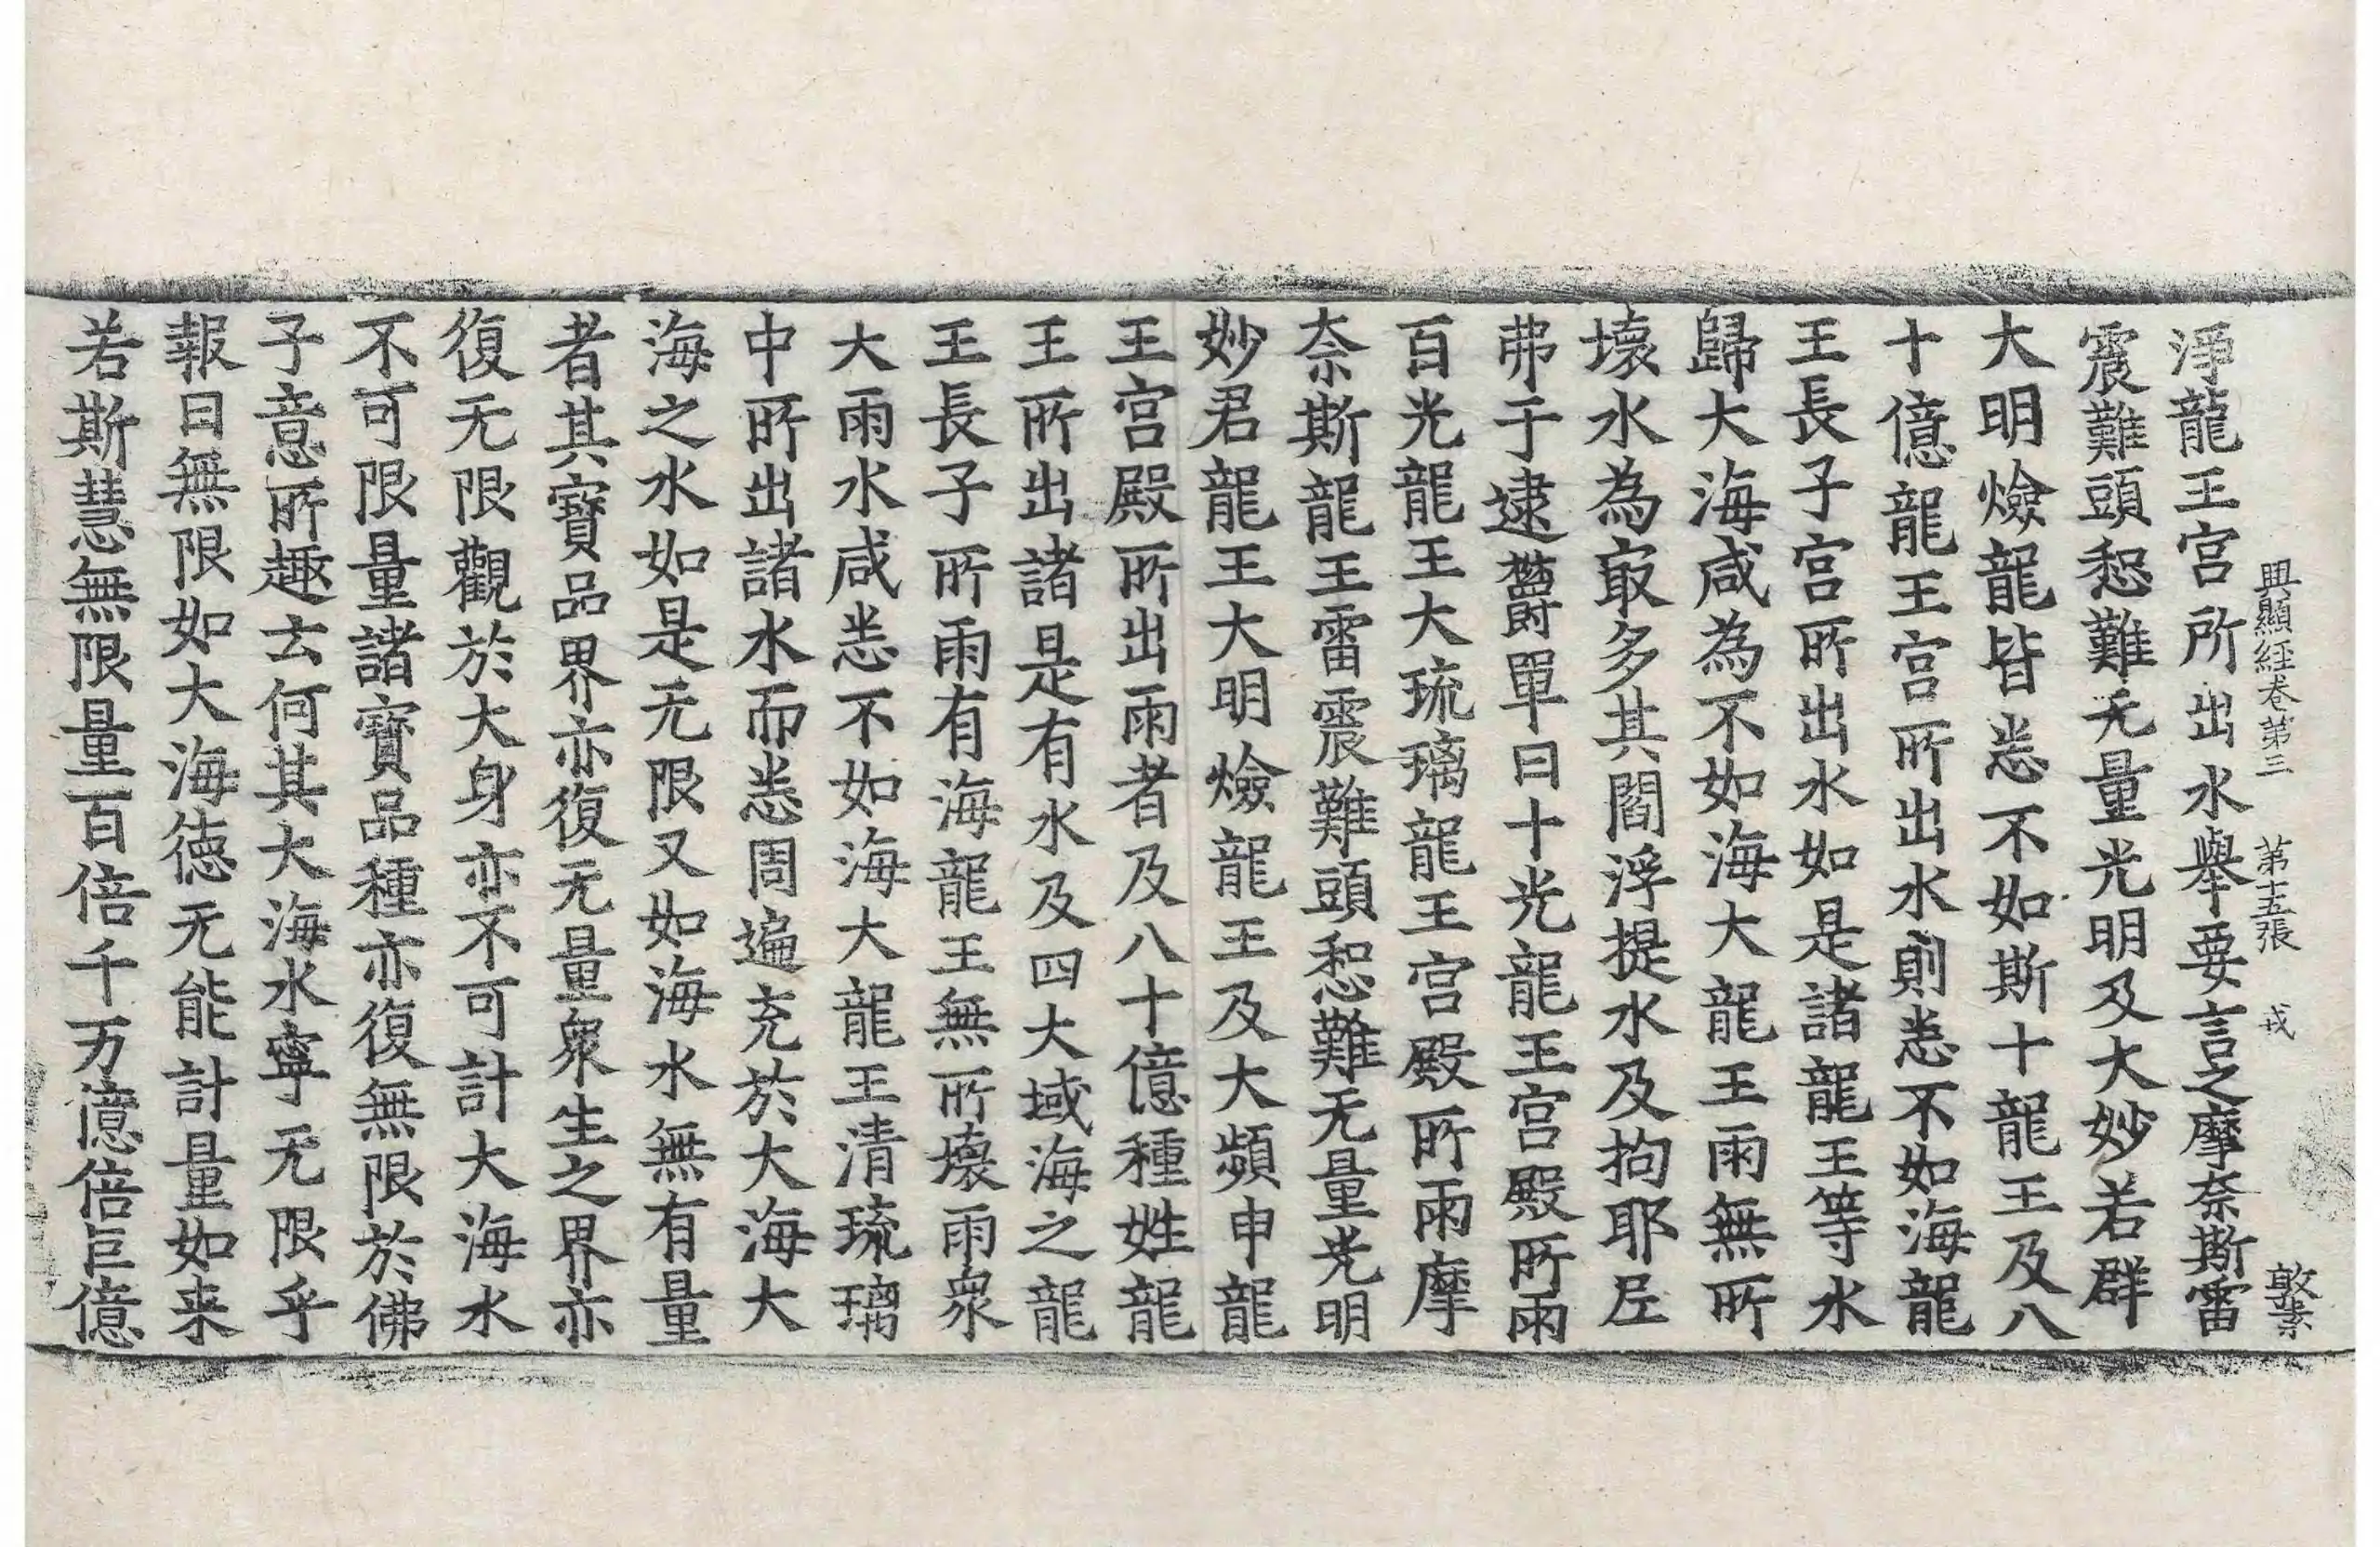 興顯経卷第三 第十五張 戎 敦素
淨龍王宮所出水舉要言之摩奈斯雷
震難頭惒難无量光明及大妙若群
大明燄龍皆悉不如斯十龍王及八
十億龍王宮所出水則悉不如海龍
王長子宮所出水如是諸龍王等水
歸大海咸為不如海大龍王雨無所
壞水為㝡多其閻浮提水及拘耶尼
弗于逮欝單曰十光龍王宮殿所雨
百光龍王大琉璃龍王宮殿所雨摩
奈斯龍王雷震難頭惒難无量光明
妙君龍王大明燄龍王及大頻申龍
王宮殿所出雨者及八十億種姓龍
王所出諸是有水及四大域海之龍
王長子所雨有海龍王無所壞雨衆
大雨水咸悉不如海大龍王清琉璃
中所出諸水而悉周遍充於大海大
海之水如是无限又如海水無有量
者其寶品界亦復无量衆生之界亦
復无限觀於大身亦不可計大海水
不可限量諸寶品種亦復無限於佛
子意所趣云何其大海水寧无限乎
報曰無限如大海德无能計量如来
若斯慧無限量百倍千万億倍巨億